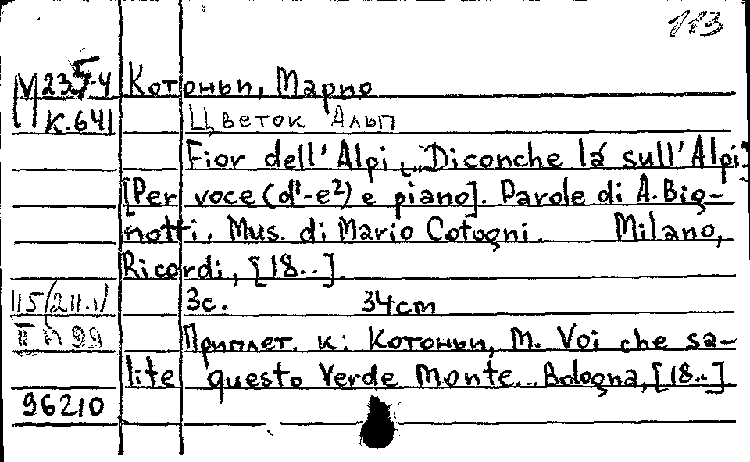 113
М235-4 Котоньи, Марио
К.641 Цветок Альп
Fior dell'Alpi „Diconche lá sull'Alpi„
[Per voce (d¹-e²) e piano]. Parole di A. Big-
notti. Mus. di Mario Cotogni. Milano,
Ricordi, [18..].
115(211.1) 3с. 34cm
II п 99 Приплет. к: Котоньи, М. Voi che sa-
lite questo Verde Monte... Bologna, [18..]
96210